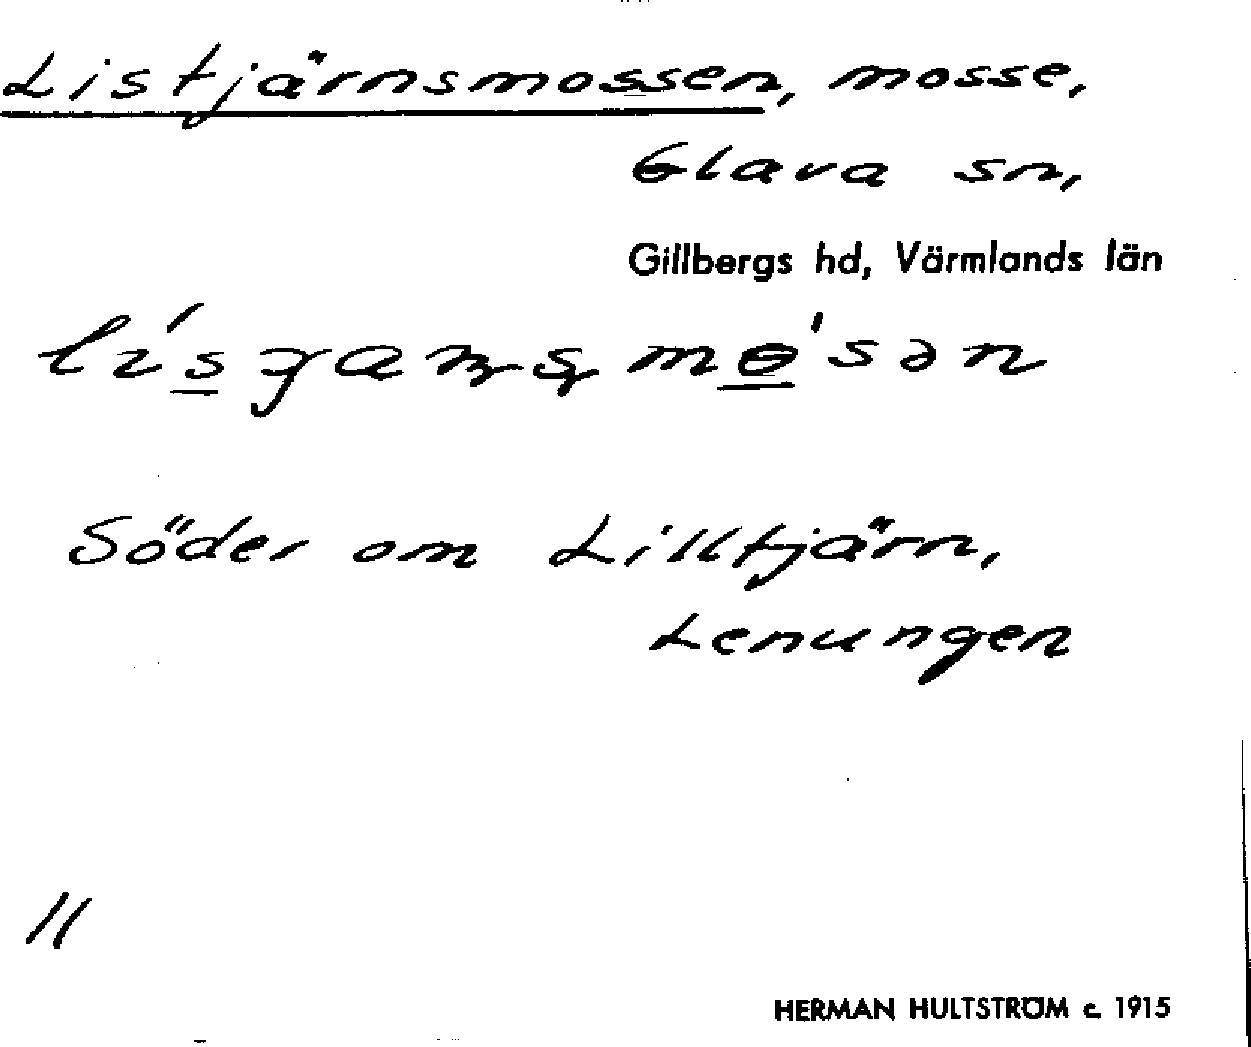 Listjärnsmossen, mosse,
Glava sn,
Gillbergs hd, Värmlands län
Söder om Lilltjärn,
Lenungen
11
HERMAN HULTSTRÖM c. 1915